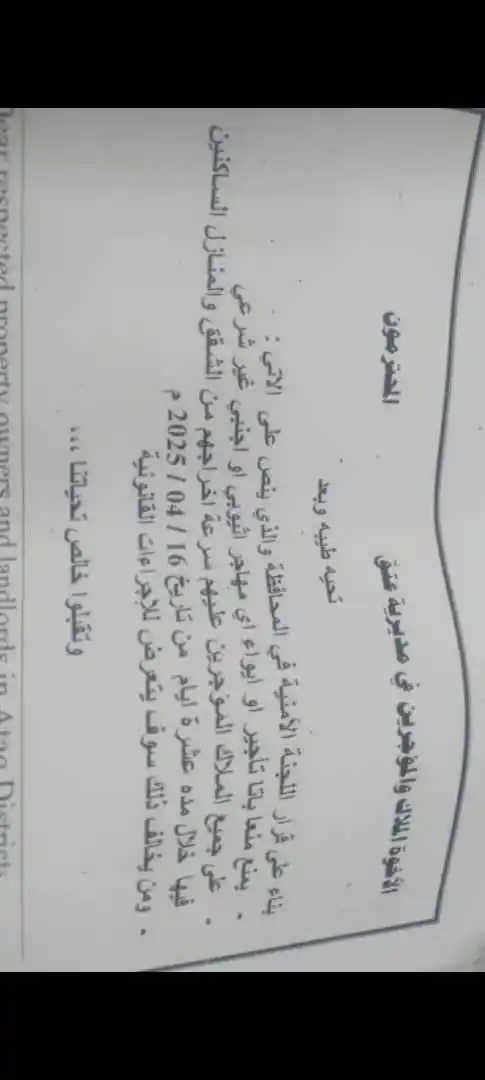 الأخوة الملاك والمؤجرين في مديرية عتق المحترمون
تحيه طيبه وبعد
بناء على قرار اللجنة الأمنية في المحافظة والذي ينص على الاتي :
• يمنع منعا باتا تأجير او ايواء اي مهاجر اثيوبي او اجنبي غير شرعي
• على جميع الملاك المؤجرين عليهم سرعة اخراجهم من الشقق والمنازل الساكنين
فيها خلال مده عشرة ايام من تاريخ 16 / 04 / 2025 م
• ومن يخالف ذلك سوف يتعرض للإجراءات القانونية
وتقبلوا خالص تحياتنا ...
Dear respected property owners and landlords in Ataq District,